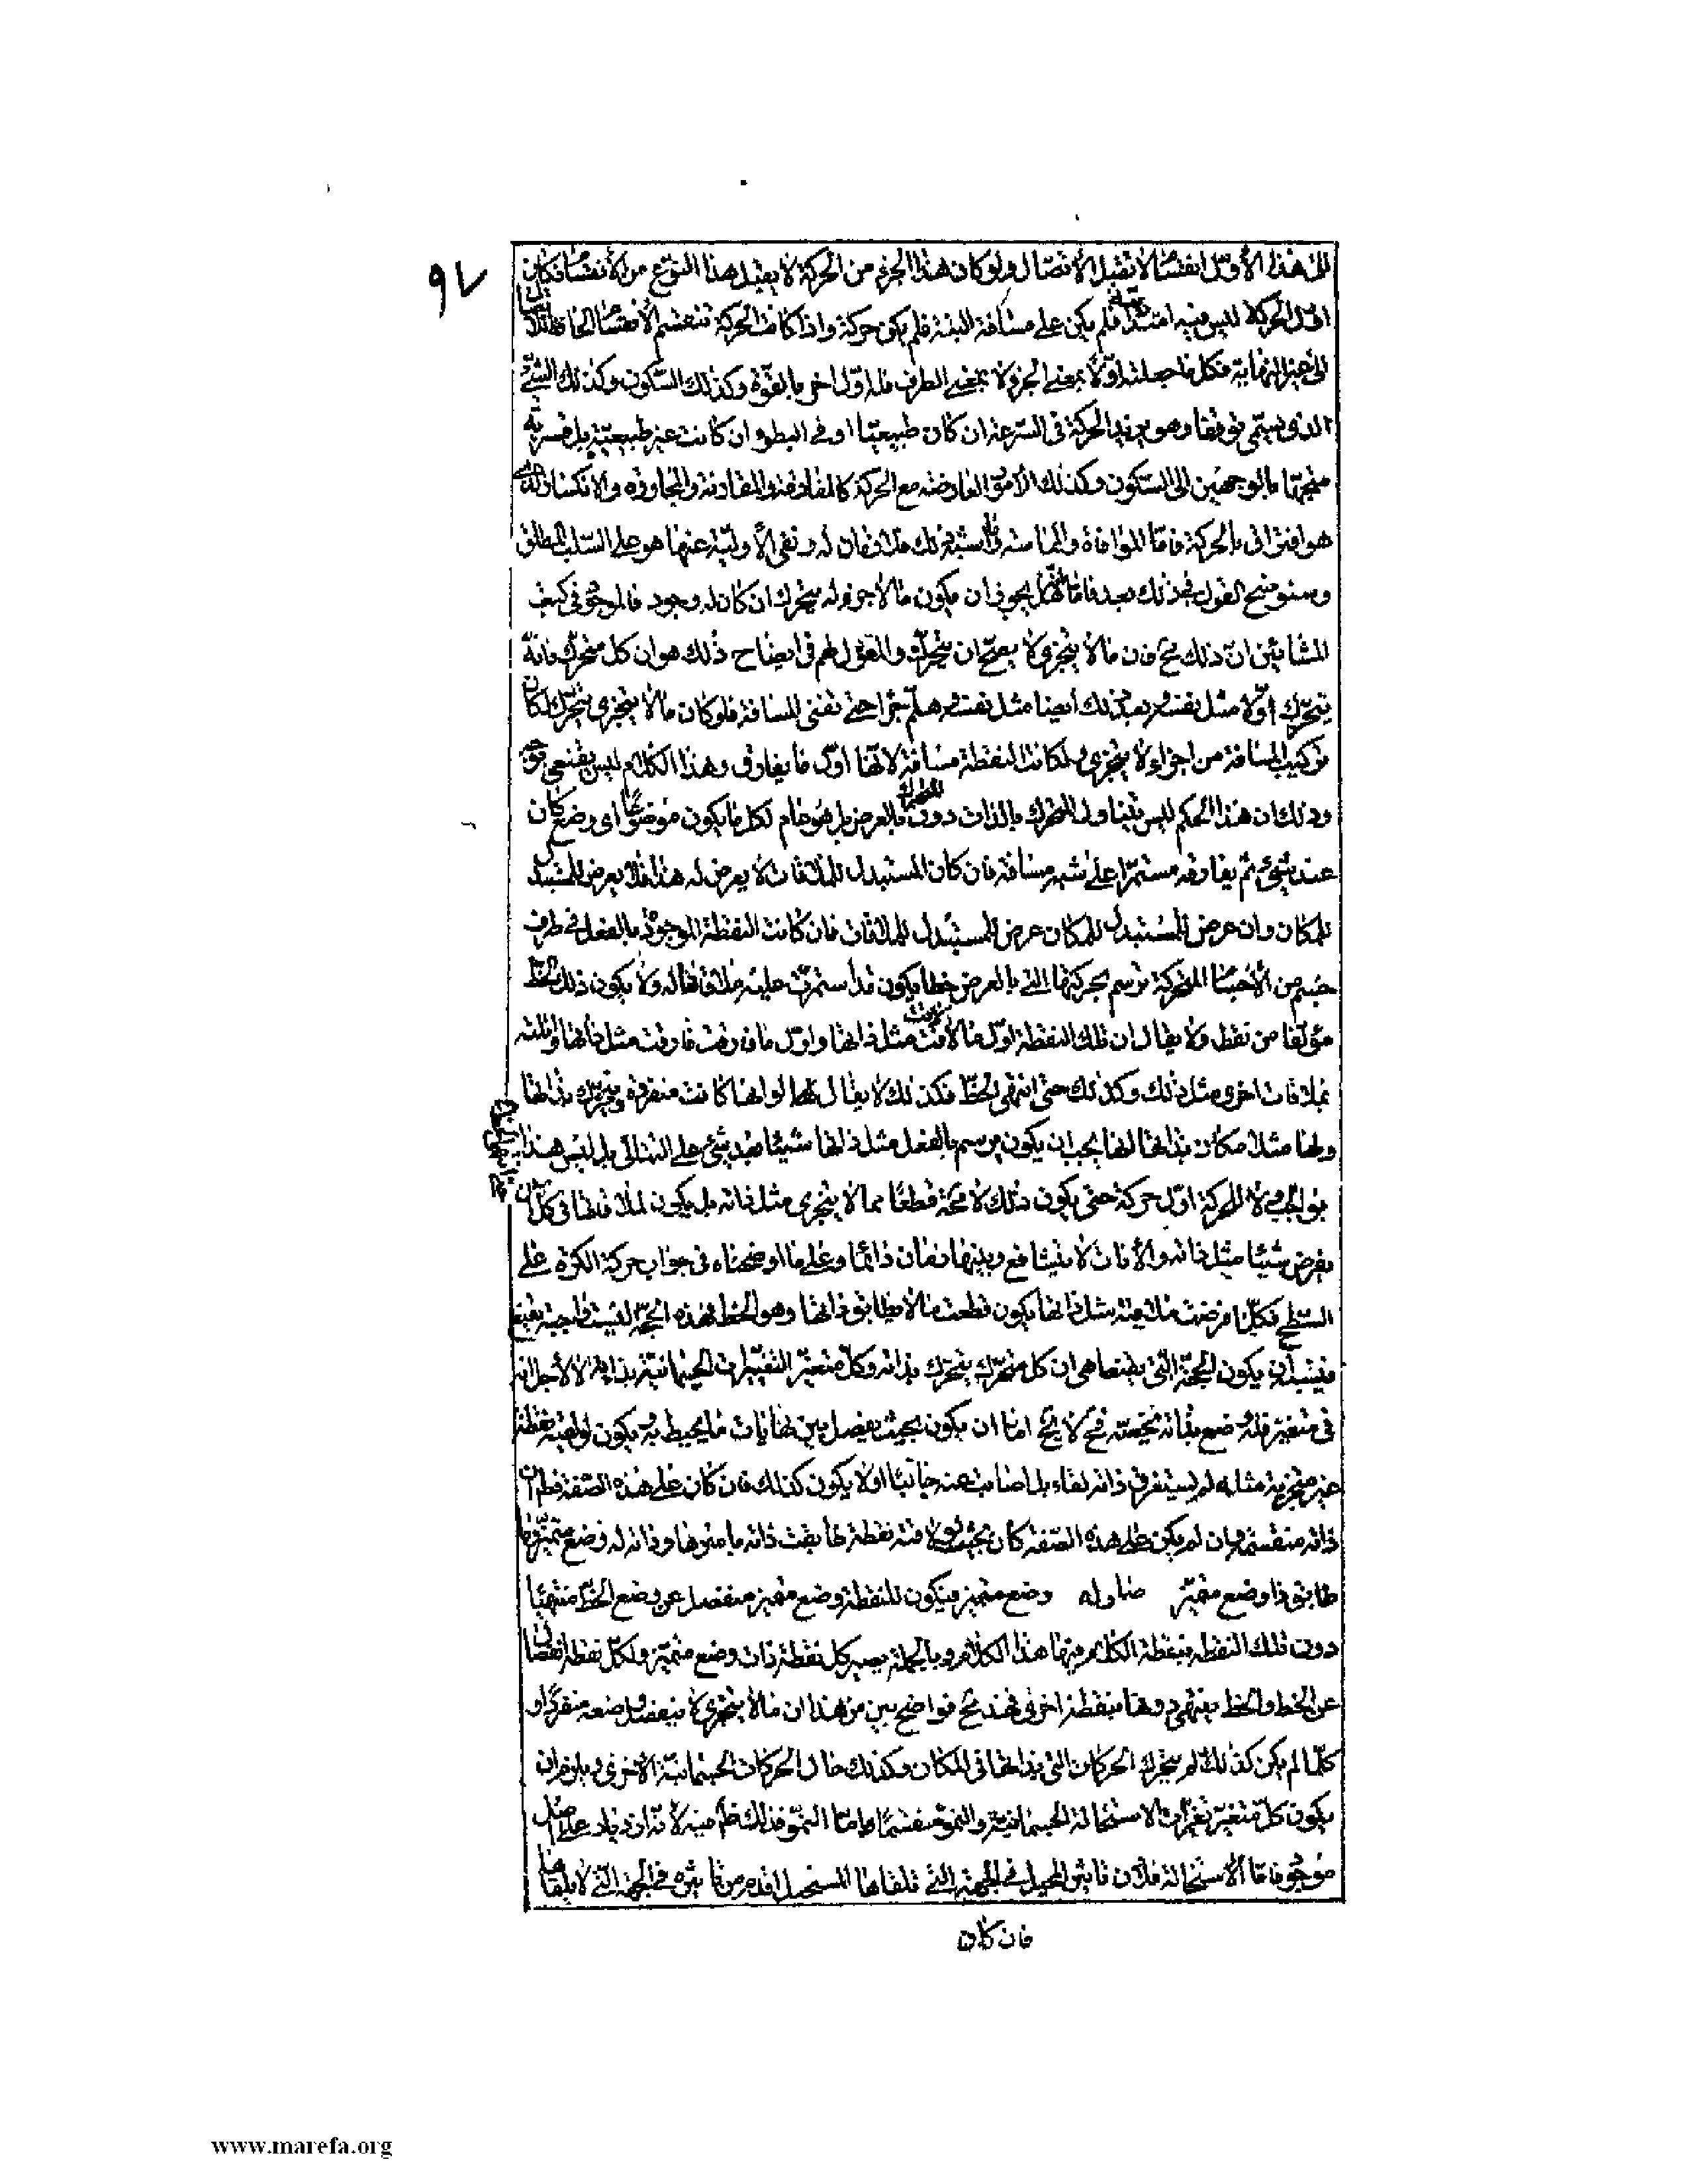 ٩٧
لكن هذا الأول انقسامًا لا تقبل الانفصال ولو كان هذا الجزء من الحركة لا يقبل هذا النوع من الانقسام فكان
اول الحركة ليس فيه امتداد فلم يكن على مسافة البتة فلم يكن حركة واذا كانت الحركة تنقسم الانقسام
الى غير النهاية فكل ما جعلته اولًا بمعنى الجزء لا بمعنى الطرف فله اول اخر بالقوة وكذلك السكون وكذلك الشئ
الذى يسمى توقفا وهو يزيد الحركة فى السرعة ان كان طبيعيا او فى البطؤ ان كانت غير طبيعية بل قسرية
متجها بالوجهين الى السكون وكذلك الامور العارضة مع الحركة كالمفارقة والمقارنة والمجاورة والانكسار
هو افتراق بالحركة فاما الموافاة والمماسة وما اشبه ذلك فلا زمان له ونفى الاولية عنها هو على السلب المطلق
وسنوضح القول فى ذلك بعد فاما انه هل يجوز ان يكون ما لا جزء له يتحرك ان كان له وجود فالموجود فى كتب
المشائين ان ذلك مح فان ما لا يتجزى لا يصح ان يتحرك والمعول لهم فى ايضاح ذلك هو ان كل متحرك فانه
يتحرك اولا مثل نفسه وبعد ذلك ايضا مثل نفسه وهلم جرا حتى تفنى المسافة فلو كان ما لا يتجزى يتحرك لكان
تركيب المسافة من اجزاء لا يتجزى ولكانت النقطة مسافة لانها اول ما يفارق وهذا الكلام ليس يقنعنى
وذلك ان هذا الحكم ليس يتناول المتحرك بالذات دون المتحرك بالعرض بل هو عام لكل ما يكون موضوعًا اى وضع كان
عند شئ ثم يفارقه مستمرا على شبه مسافة فان كان المستبدل للملاقات لا يعرض له هذا فلا يعرض للمستبدل
للمكان وان عرض للمستبدل للمكان عرض للمستبدل للملاقات فان كانت النقطة الموجودة بالفعل فى طرف
جسم من الاجسام المتحركة ترسم بحركتها التى بالعرض خطا يكون قد استمرت عليه ملاقاتها له ولا يكون ذلك الخط
مؤلفا من نقط ولا يقال ان تلك النقطة اول ما لاقت لاقت مثل ذاتها واول ما فارقت فارقت مثل ذاتها
بملاقات اخرى مثل ذلك وكذلك حتى انتهى الخط فكذلك لا يقال لها لو انها كانت منفردة وتتحرك بذاتها
ولها مثلا مكان بذاتها انها يجب ان يكون يرسم بالفعل مثل ذاتها شيئا بعد شئ على التتالى بل ليس هذا
بواجب لانه لا للحركة اول حركة حتى يكون ذلك لا محة قطعًا مما لا يتجزى مثل ذاته بل يكون لملاقاتها فى كل آن
يفرض شيئا مثل ذاته والآنات لا يتشافع وبينها زمان دائما وعلى ما اوضحناه فى جواب حركة الكرة على
السطح فكلما فرضت ملاقية مثل ذاتها يكون قطعت ما لا يطابق ذاتها وهو الخط فهذه الحجة ليست
فيشبه ان يكون الحجة التى هى ان كل متحرك يتحرك بذاته وكل متغير التغيرات الجسمانية بذاته لا لاجل انه
فى متغير فله وضع بذاته يخصه فح لا يخ اما ان يكون بحيث يفصل بين نهايات ما يحيط به يكون لو لقيته نقطة
غير متجزية مثلا له لم يستغرق ذاته لقاء بل اصابت عنه جانبًا او لا يكون كذلك فان كان على هذه الصفة فظ ان
ذاته منقسم وان لم يكن على هذه الصفة كان بحيث لو لاقته نقطة طابقت ذاته باسرها وذاته له وضع متميز
طابق ذا وضع متميز وله وضع متميز فيكون للنقطة وضع متميز منفصل عن وضع الخط منتهيًا
دون تلك النقطة بنقطة الكلام فيها هذا الكلام وبالجملة يصير كل نقطة ذات وضع متميز ولكل نقطة انفصال
عن الخط والخط ينتهى دونها بنقطة اخرى فهذا مح فواضح بين من هذا ان ما لا يتجزى لا ينفصل وضعه منفردًا و
كلما لم يكن كذلك لم يتحرك الحركات التى بذاتها فى المكان وكذلك حال الحركات الجسمانية الاخرى ويلزم ان
يكون كل متغير تغيرات الاستحالة الجسمانية والنمو منقسمًا اما النمو فذلك ظ فيه لانه ازدياد على اصل
موجود فاما الاستحالة فلان تاثير المحيل فى الجهة التى تلقاها المستحيل اقدم من تاثيره فى الجهة التى لا يلقاها
فان كان
www.marefa.org